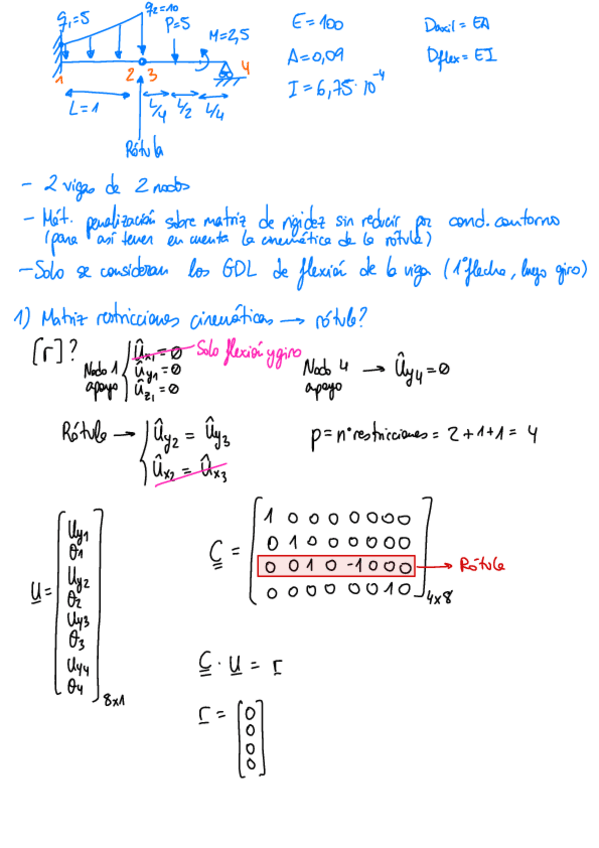 q₁=5
q₂=10
P=5
M=2,5
1
2
3
4
L=1
L/4
L/2
L/4
Rótula
E=100
A=0,09
I=6,75·10⁻⁴
Daxil = EA
Dflex = EI
- 2 vigas de 2 nodos
- Mét. penalización sobre matriz de rigidez sin reducir por cond. contorno
(para así tener en cuenta la cinemática de la rótula)
- Solo se consideran los GDL de flexión de la viga (1º flecha, luego giro)
1) Matriz restricciones cinemáticas → rótula?
[r]?
Nodo 1
apoyo
Ûx₁ = 0
Ûy₁ = 0
Ûz₁ = 0
Solo flexión y giro
Nodo 4
apoyo
→ Ûy₄ = 0
Rótula →
Ûy₂ = Ûy₃
Ûx₂ = Ûx₃
p = nº restricciones = 2+1+1 = 4
U =
Uy₁
θ₁
Uy₂
θ₂
Uy₃
θ₃
Uy₄
θ₄
8x1
C =
1 0 0 0 0 0 0 0
0 1 0 0 0 0 0 0
0 0 1 0 -1 0 0 0
0 0 0 0 0 0 1 0
4x8
→ Rótula
C · U = r
r =
0
0
0
0